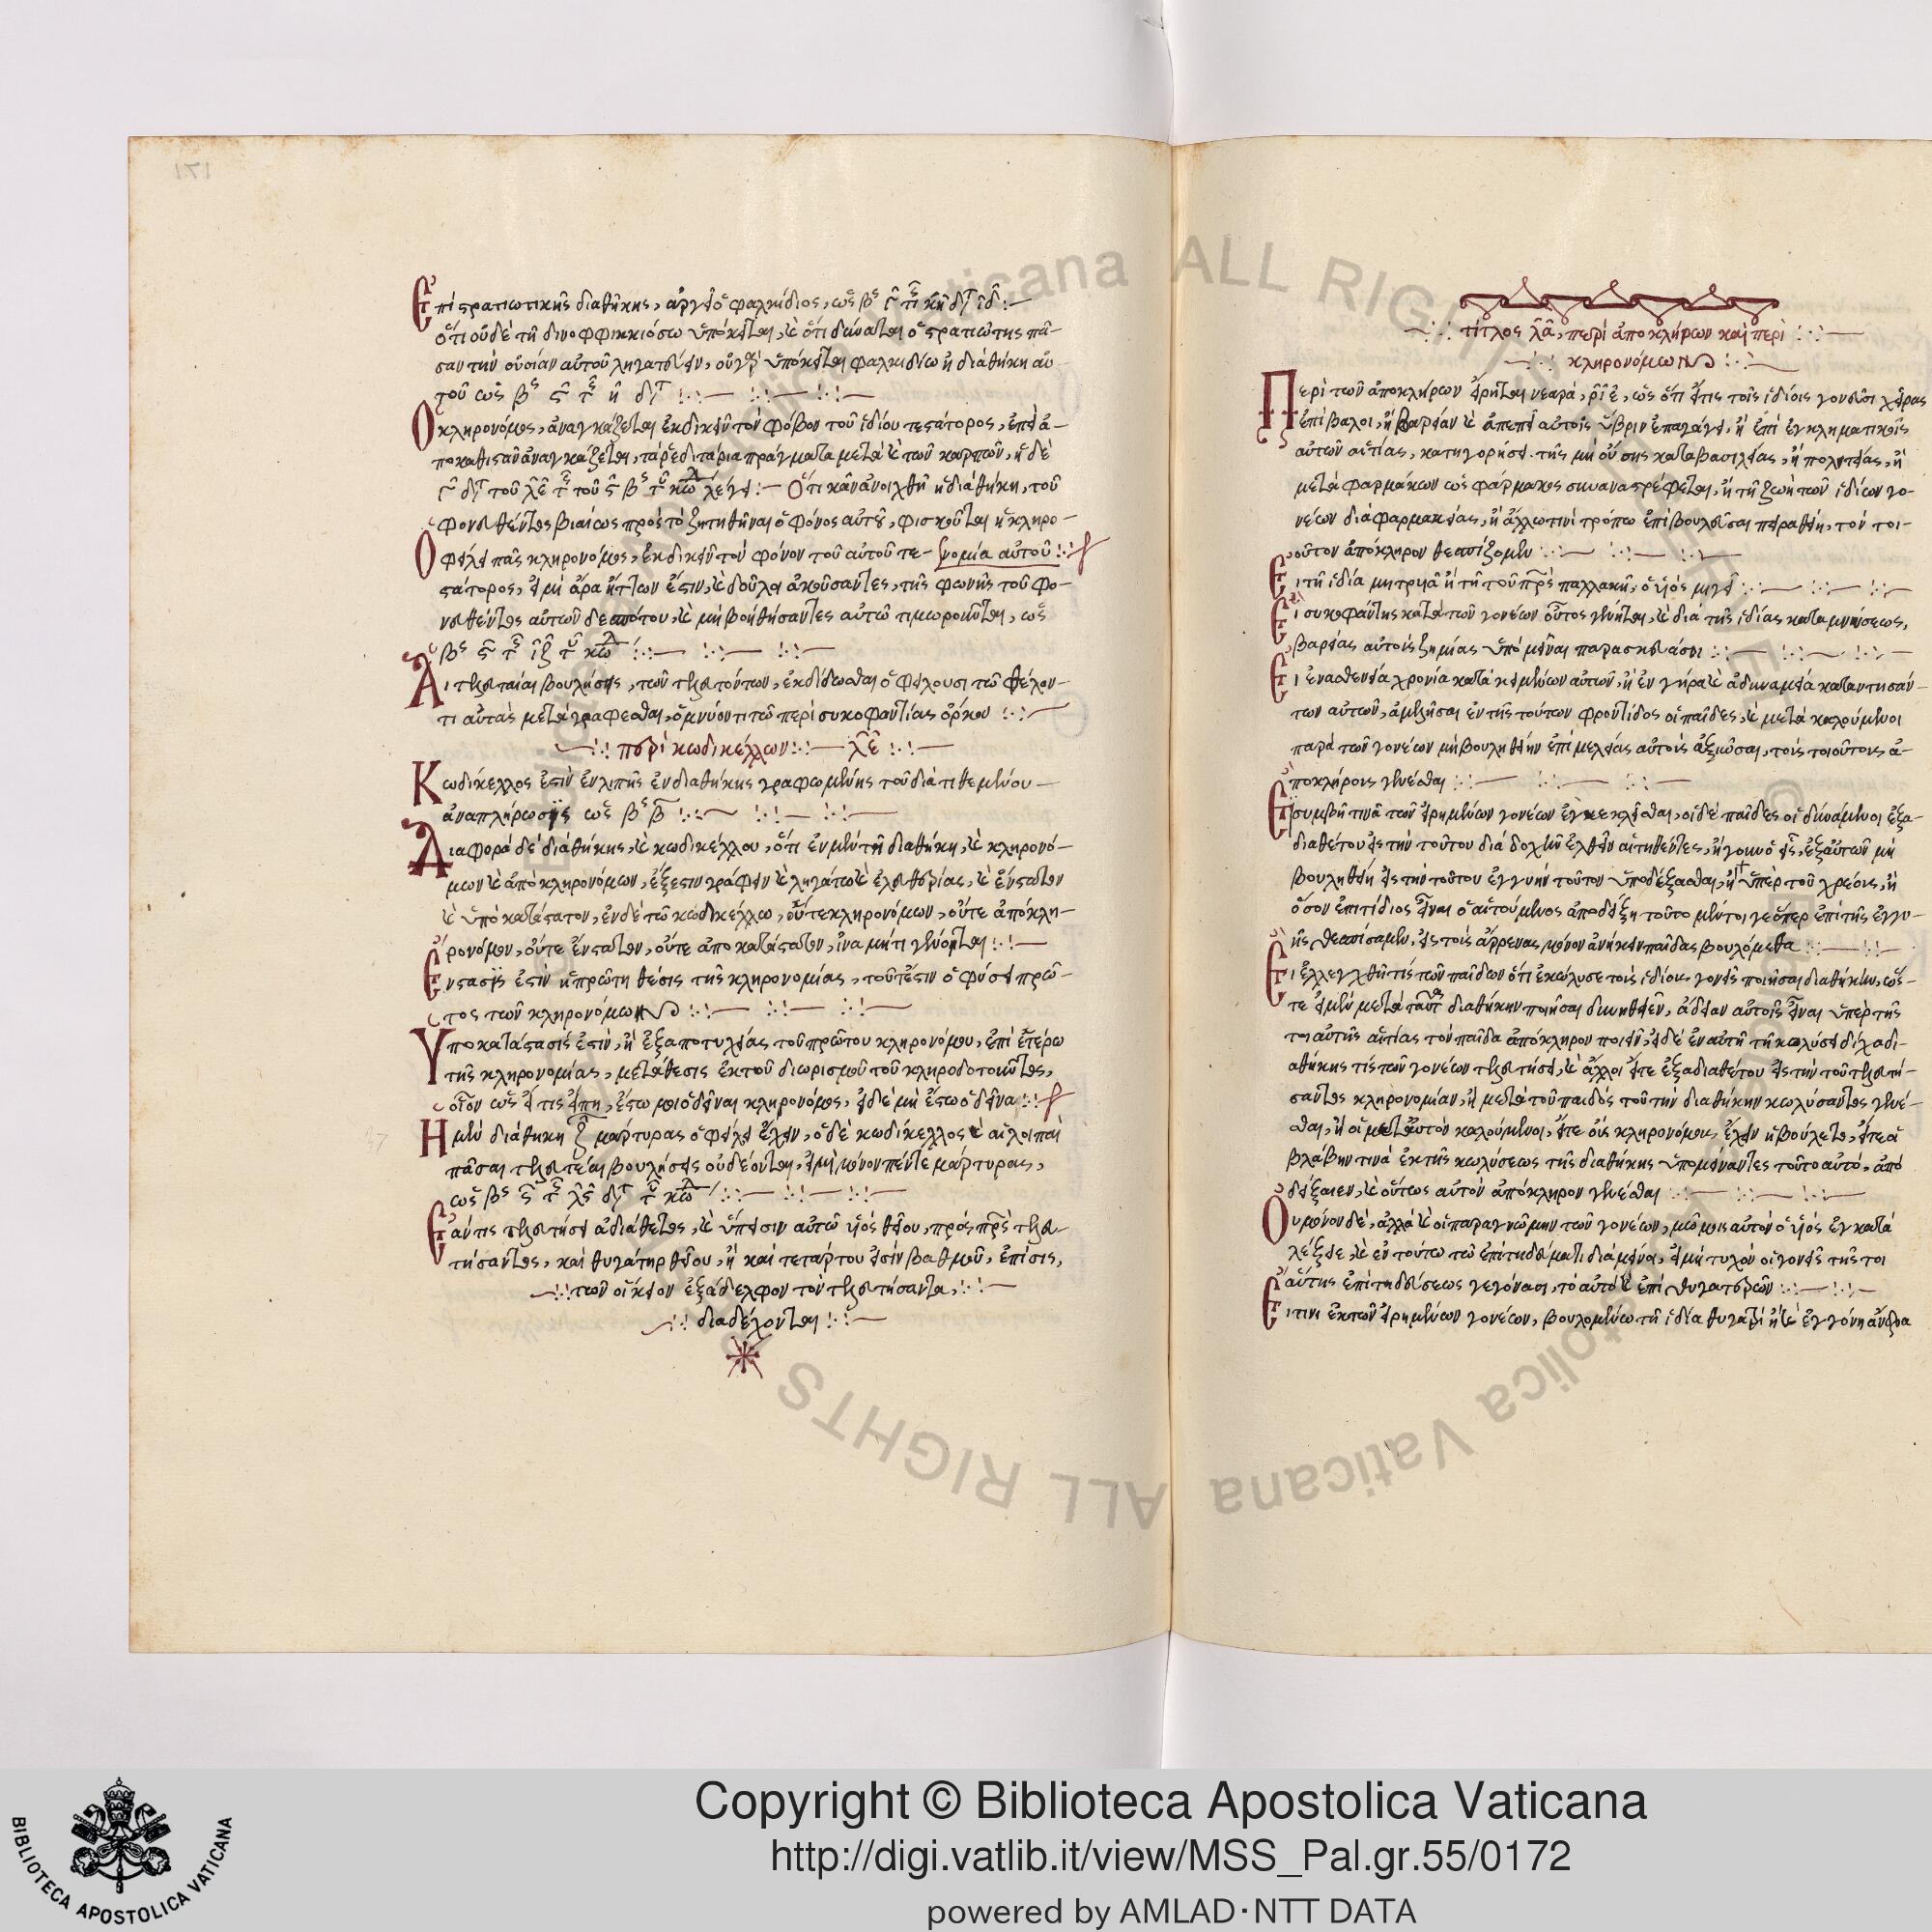 171
Ἐπὶ στρατιωτικῆς διαθήκης, ἀργεῖ ὁ φαλκίδιος, ὡς
ὅτι οὐδὲ τῆ δινοφφικκιόσω ὑπόκειται, καὶ ὅτι δύναται ὁ στρατιώτης πᾶ-
σαν τὴν οὐσίαν αὐτοῦ ληγατεύειν, οὐ γὰρ ὑπόκειται φαλκιδίω ἡ διαθήκη αὐ
τοῦ ὡς
Ὁ κληρονόμος, ἀναγκάζεται ἐκδικεῖν τὸν φόβον τοῦ ἰδίου τεστάτορος, ἐπεὶ ἀ-
ποκαθιστᾶν ἀναγκάζεται, τὰ ῥεδιτάρια πράγματα μετὰ καὶ τῶν καρπῶν, ἡ δὲ
τοῦ λε τοῦ λέγει :— Ὅτι κἂν ἀνοιχθῆ ἡ διαθήκη, τοῦ
φονευθέντος βιαίως πρὸς τὸ ζητηθῆναι ὁ φόνος αὐτοῦ, φισκοῦται ἡ κληρο-
νομία αὐτοῦ
Ὀφείλει πᾶς κληρονόμος, ἐκδικεῖν τὸν φόνον τοῦ αὐτοῦ τε-
στάτορος, εἰ μὴ ἄρα ἥττων ἐστιν, καὶ δοῦλοι ἀκούσαντες, τῆς φωνῆς τοῦ φο-
νευθέντος αὐτῶν δεσπότου, καὶ μὴ βοηθήσαντες αὐτῶ τιμωροῦνται, ὡς
Αἱ τελευταῖαι βουλήσεις, τῶν τελευτόντων, ἐκδίδωσθαι ὀφείλουσι τῶ θέλον-
τι αὐτὰς μεταγράφεσθαι, ὀμνύοντι τῶ περὶ συκοφαντίας ὅρκου
περὶ κωδικέλλων λε
Κωδίκελλος ἐστὶν ἐνλιπῆς ἐν διαθήκης γραφωμένης τοῦ διατιθεμένου
ἀναπλήρωσις ὡς
Διαφορὰ δὲ διαθήκης, καὶ κωδικέλλου, ὅτι ἐν μὲν τῆ διαθήκη, καὶ κληρονό-
μων καὶ ἀποκληρονόμων, ἔξεστιν γράφειν καὶ ληγάτω καὶ ἐλευθερίας, καὶ ἔνστατον
καὶ ὑποκατάστατον, ἐν δὲ τῶ κωδικέλλω, οὔτε κληρονόμων, οὔτε ἀποκλη-
ρονόμον, οὔτε ἔνστατον, οὔτε ἀποκατάστατον, ἵνα μήτι γένονται
Ἔνστασις ἐστὶν ἡ πρώτη θέσις τῆς κληρονομίας, τουτέστιν ὁ φύσει πρῶ-
τος τῶν κληρονόμων
Ὑποκατάστασις ἐστὶν, ἡ ἐξ ἀποτυχίας τοῦ πρώτου κληρονόμου, ἐπὶ ἑτέρω
τῆς κληρονομίας, μετάθεσις ἐκ τοῦ διωρισμοῦ τοῦ κληροδοτοῦντος,
οἷον ὡς εἴ τις εἴπη, ἔστω μοι ὁ δεῖνα κληρονόμος, εἰ δὲ μὴ ἔστω ὁ δεῖνα
Ἡ μὲν διάθηκη ζ μάρτυρας ὀφείλει ἔχειν, ὁ δὲ κωδίκελλος καὶ αἱ λοιπαὶ
πᾶσαι τελευταίαι βουλήσεις οὐ δέονται, εἰ μὴ μόνον πέντε μάρτυρας,
ὡς
Ἐάν τις τελευτήσει ἀδιάθετος, καὶ ὕπεισιν αὐτῶ υἱός θείου, πρὸς πατρὸς τελευ-
τήσαντος, καὶ θυγάτηρ θείου, ἢ καὶ τετάρτου εἰσὶν βαθμοῦ, ἐπίσης,
τῶν οἰκεῖον ἐξάδελφον τὸν τελευτήσαντα,
διαδέχονται
τίτλος λα, περὶ ἀποκλήρων καὶ περὶ
κληρονόμων
Περὶ τῶν ἀποκλήρων εἴρηται νεαρὰ, ριε, ὡς ὅτι εἴτις τοῖς ἰδίοις γονεῦσι χεῖρας
ἐπιβάλοι, ἢ βαρεῖαν καὶ ἀπεπῆ αὐτοῖς ὕβριν ἐπαγάγει, ἢ ἐπὶ ἐγκληματικαῖς
αὐτῶν αἰτίας, κατηγορήσει, τῆς μὴ οὔσης κατὰ βασιλείας, ἢ πολιτείας, ἢ
μετὰ φαρμάκων ὡς φάρμακος συναναστρέφεται, ἢ τῆ ζωῆ τῶν ἰδίων γο-
νέων διὰ φαρμακείας, ἢ ἄλλω τινὶ τρόπω ἐπιβουλεῦσαι πειραθείη, τὸν τοι-
οῦτον ἀπόκληρον θεσπίζομεν
Εἰ τῆ ἰδία μητρυιᾶ ἢ τῆ τοῦ πατρὸς παλλακῆ, ὁ υἱός μιγεῖ
Εἰ συκοφάντης κατὰ τῶν γονέων οὗτος γένηται, καὶ διὰ τῆς ἰδίας καταμηνύσεως,
βαρείας αὐτοῖς ζημίας ὑπομεῖναι παρασκευάσοι
Εἰ ἐν ἀσθενεία χρονία κατακειμένων αὐτῶν, ἢ ἐν γήρα καὶ ἀδυναμία καταντησάν-
των αὐτῶν, ἀμελῆσαι ἐν τῆς τούτων φροντίδος οἱ παῖδες, καὶ μετακαλούμενοι
παρὰ τῶν γονέων μὴ βουληθεῖεν ἐπιμελείας αὐτοὺς ἀξιῶσαι, τοὺς τοιούτους ἀ-
ποκλήροις γενέσθαι
Εἰ συμβῆ τινὰ τῶν εἰρημένων γονέων ἐγκεκλεῖσθαι, οἱ δὲ παῖδες οἱ δυνάμενοι ἐξ ἀ-
διαθέτου εἰς τὴν τούτου διαδοχὴν ἐλθεῖν αἰτηθέντες, ἢ γουν ὁ εἷς, ἐξ αὐτῶν μὴ
βουληθείη εἰς τὴν τούτου ἐγγύην τοῦτον ὑποδέξασθαι, ἢ ὑπὲρ τοῦ χρέους, ἢ
ὅσον ἐπιτίδιος εἶναι ὁ αἰτούμενος ἀποδείξη τοῦτο μέντοι γε ὅπερ ἐπὶ τῆς ἐγγύ-
ης θεσπίσαμεν, εἰς τοὺς ἄρρενας, μόνον ἀνήκειν παῖδας βουλόμεθα
Εἰ ἐλλεγχθῆ τίς τῶν παίδων ὅτι ἐκώλυσε τοὺς ἰδίους γονεῖς ποιῆσαι διαθήκην, ὡς-
τε εἰ μὲν μετὰ ταῦτα διαθήκην ποιῆσαι δυνηθεῖεν, ἄδειαν αὐτοῖς εἶναι ὑπὲρ τῆς
τοιαύτης αἰτίας τὸν παῖδα ἀπόκληρον ποιεῖν, εἰ δὲ ἐν αὐτῆ τῆ κωλύσει δίχα δι-
αθήκης τίς τῶν γονέων τελευτήσει, καὶ ἄλλοι εἴτε ἐξ ἀδιαθέτου εἰς τὴν τοῦ τελευτή-
σαντος κληρονομίαν, ἢ μετὰ τοῦ παιδὸς τοῦ τὴν διαθήκην κωλύσαντος γενέ-
σθαι, ἢ οἱ μετ' αὐτὸν καλούμενοι, εἴτε οὓς κληρονόμους, ἔχειν ἠβούλετο, εἴτε οἱ
βλάβην τινὰ ἐκ τῆς κωλύσεως τῆς διαθήκης ὑπομείναντες τοῦτο αὐτό, ἀπό
δείξαιεν, καὶ οὕτως αὐτὸν ἀπόκληρον γενέσθαι
Οὐ μόνον δὲ, ἀλλὰ καὶ οἱ παρὰ γνώμην τῶν γονέων, αὐτὸν ὁ υἱὸς ἐγκατα
λέξειε, καὶ ἐν τούτω τῶ ἐπιτηδεύματι διαμείνοι, εἰ μὴ τυχὸν οἱ γονεῖς τῆς τοι
αύτης ἐπιτηδεύσεως γεγόνασι, τὸ αὐτὸ καὶ ἐπὶ θυγατέρων
Εἴ τινι ἐκ τῶν εἰρημένων γονέων, βουλομένω τῆ ἰδία θυγατρὶ ἢ καὶ ἐγγόνη ἄνδρα
ALL RIGHTS
Biblioteca Apostolica Vaticana
BIBLIOTECA APOSTOLICA VATICANA
Copyright © Biblioteca Apostolica Vaticana
http://digi.vatlib.it/view/MSS_Pal.gr.55/0172
powered by AMLAD·NTT DATA